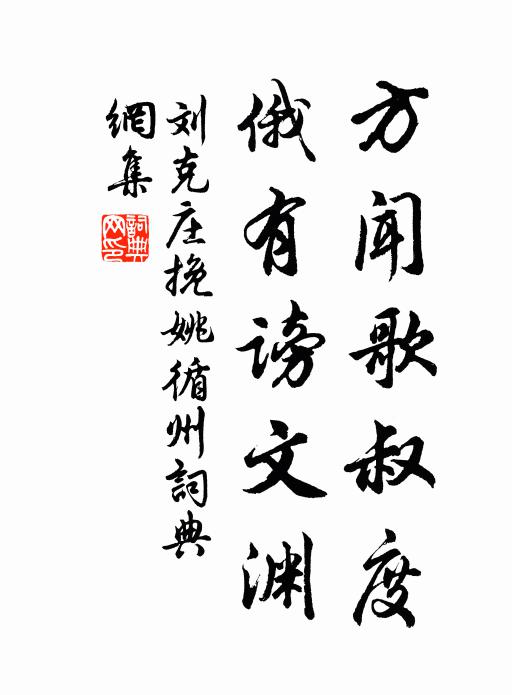 方闻歌叔度
俄有谤文渊
刘克庄挽姚循州詞典
網集
詞典网印